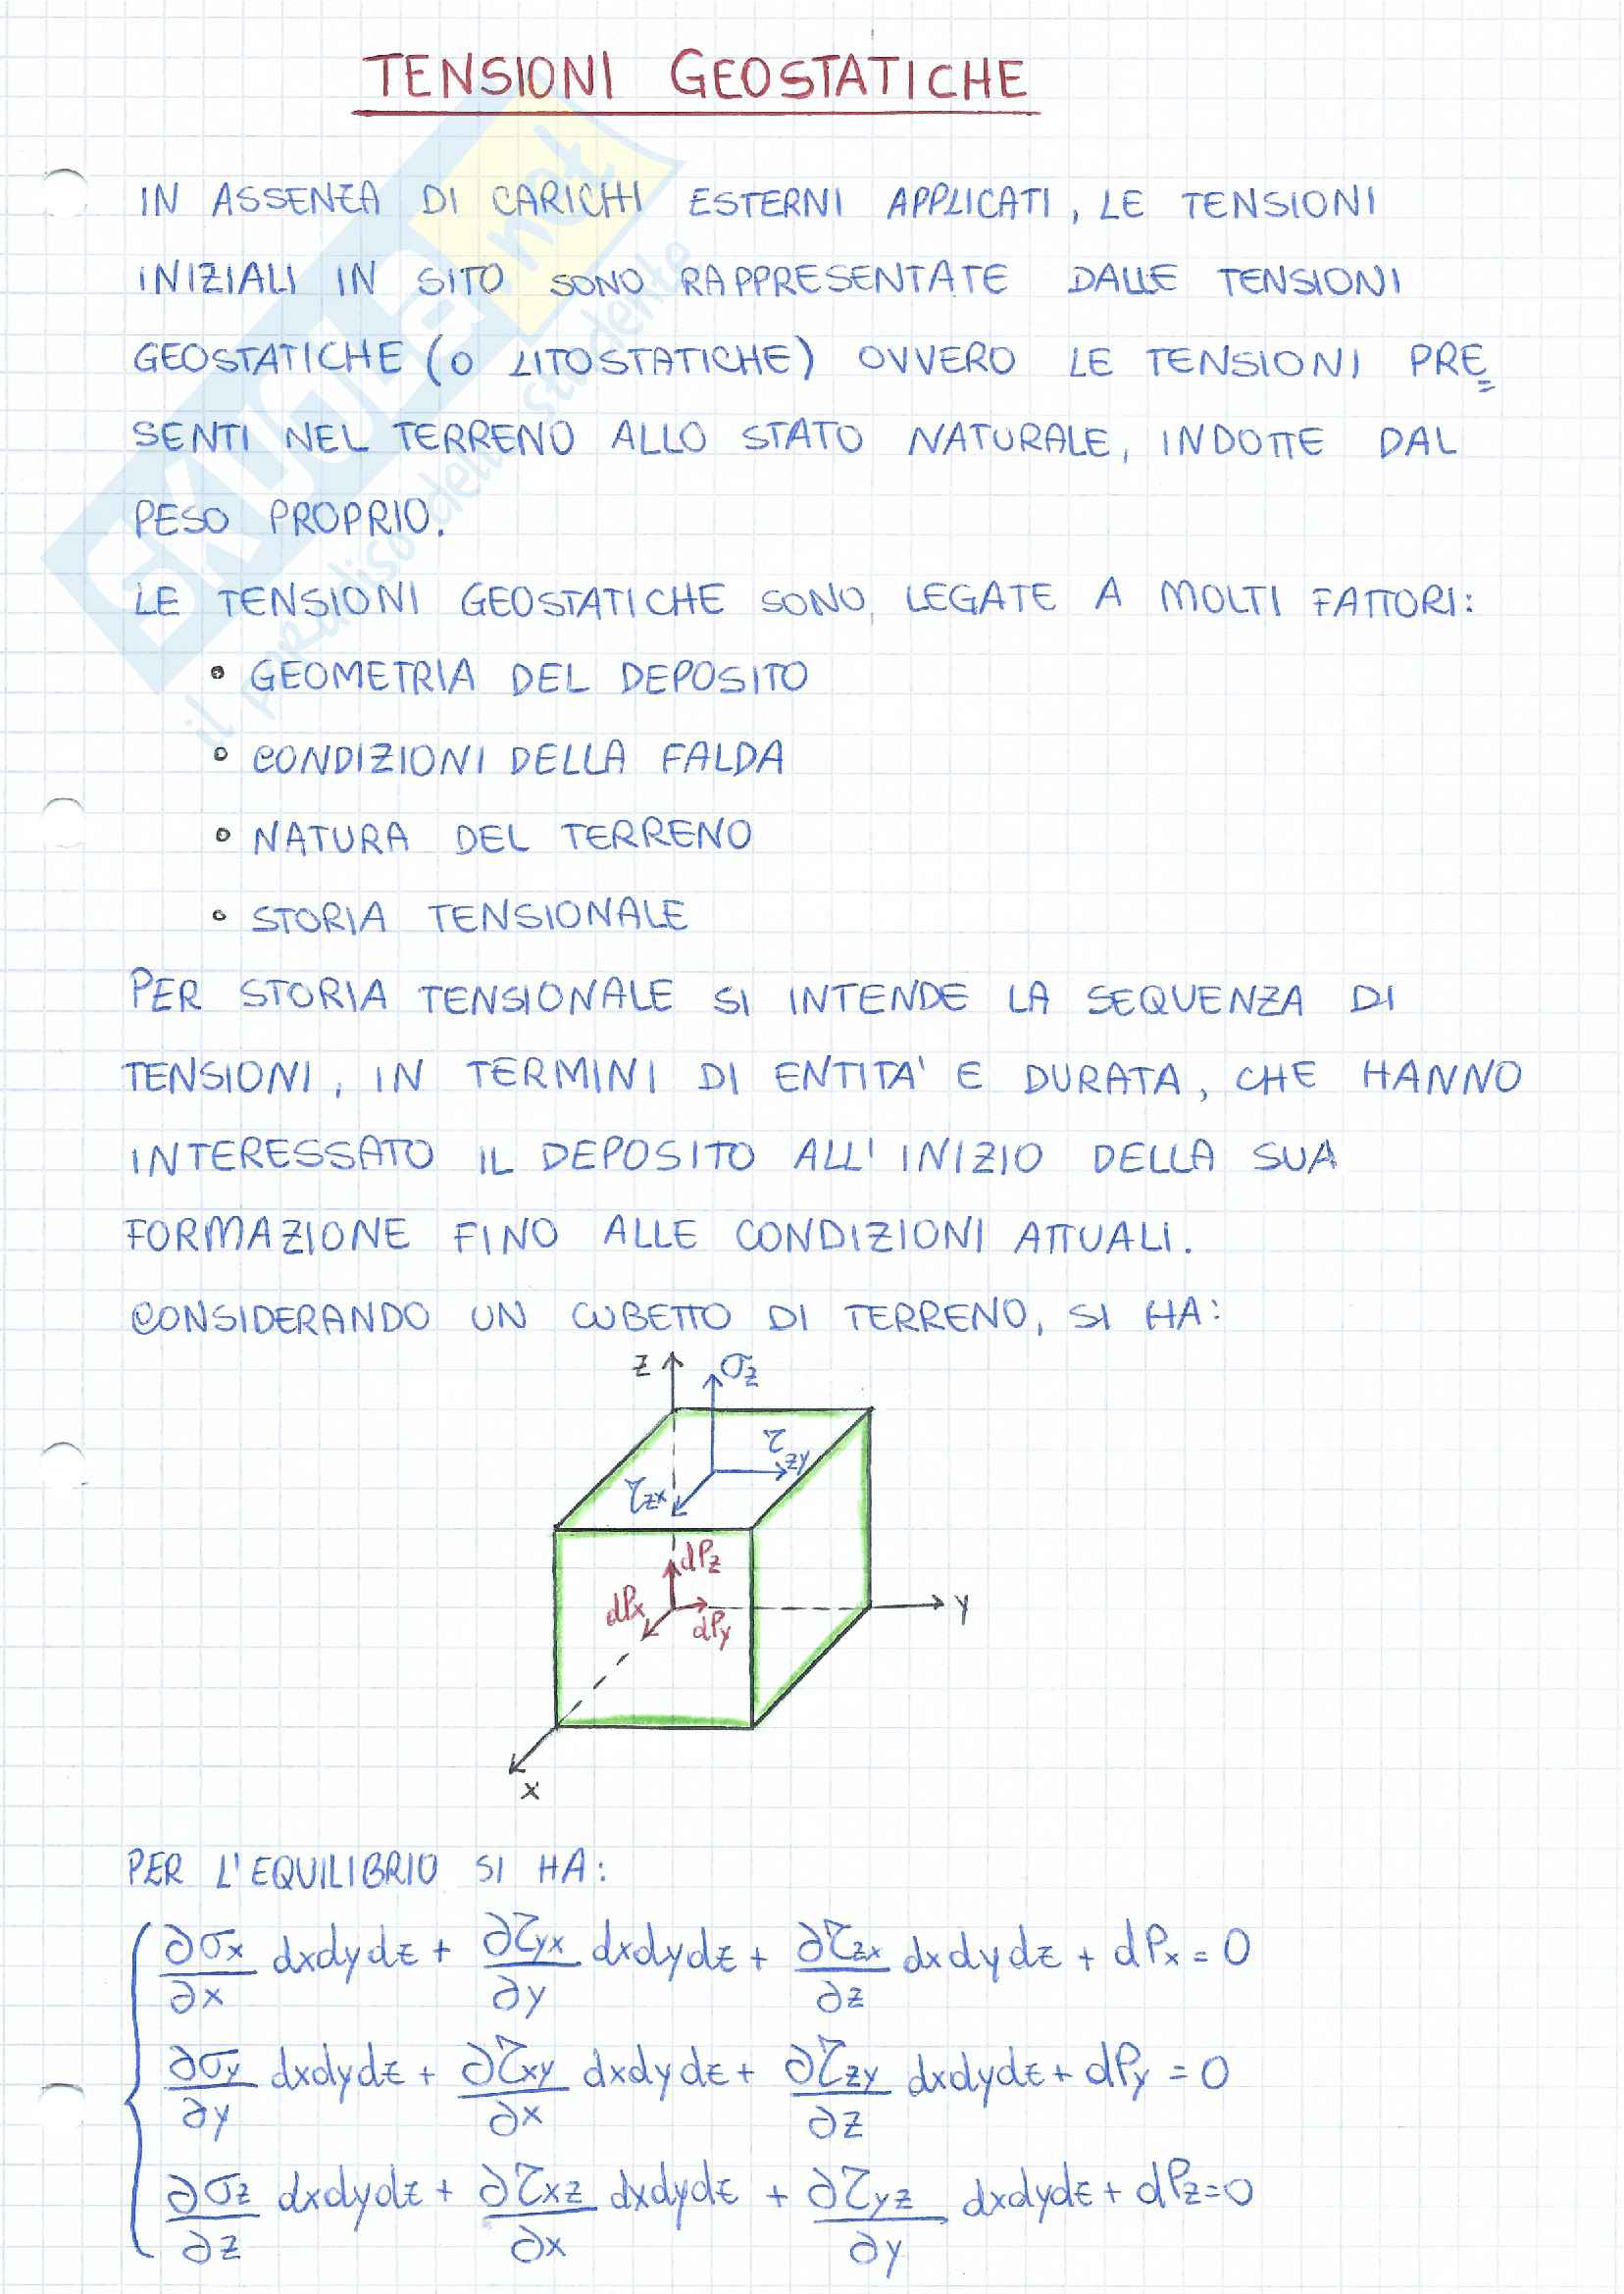 TENSIONI GEOSTATICHE
IN ASSENZA DI CARICHI ESTERNI APPLICATI, LE TENSIONI
INIZIALI IN SITO SONO RAPPRESENTATE DALLE TENSIONI
GEOSTATICHE (O LITOSTATICHE) OVVERO LE TENSIONI PRE=
SENTI NEL TERRENO ALLO STATO NATURALE, INDOTTE DAL
PESO PROPRIO.
LE TENSIONI GEOSTATICHE SONO LEGATE A MOLTI FATTORI:
• GEOMETRIA DEL DEPOSITO
• CONDIZIONI DELLA FALDA
• NATURA DEL TERRENO
• STORIA TENSIONALE
PER STORIA TENSIONALE SI INTENDE LA SEQUENZA DI
TENSIONI, IN TERMINI DI ENTITA' E DURATA, CHE HANNO
INTERESSATO IL DEPOSITO ALL'INIZIO DELLA SUA
FORMAZIONE FINO ALLE CONDIZIONI ATTUALI.
CONSIDERANDO UN CUBETTO DI TERRENO, SI HA:
z σz
τzy
τzx
dPz
dPx
dPy
y
x
PER L'EQUILIBRIO SI HA:
∂σx/∂x dxdydz + ∂τyx/∂y dxdydz + ∂τzx/∂z dxdydz + dPx = 0
∂σy/∂y dxdydz + ∂τxy/∂x dxdydz + ∂τzy/∂z dxdydz + dPy = 0
∂σz/∂z dxdydz + ∂τxz/∂x dxdydz + ∂τyz/∂y dxdydz + dPz = 0
SKUOLA.net
il paradiso dello studente